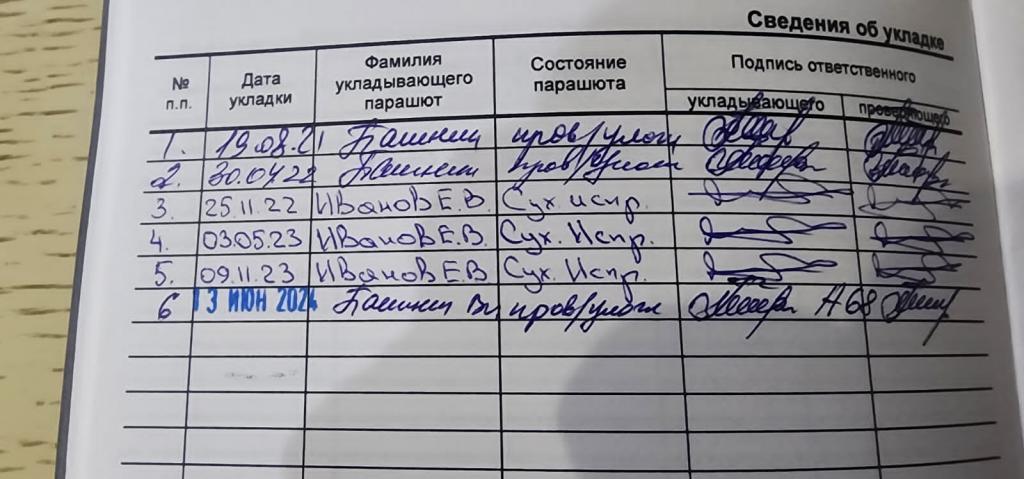 Сведения об укладке
№ п.п. Дата укладки Фамилия укладывающего парашют Состояние парашюта Подпись ответственного
укладывающего проверяющего
1. 19.08.21 пров/улож
2. 30.04 22 пров/улож
3. 25.11.22 Иванов Е.В. Сух. испр.
4. 03.05.23 Иванов Е.В. Сух. Испр.
5. 09.11.23 Иванов Е.В Сух. Испр.
6 13 ИЮН 2024 пров/улож